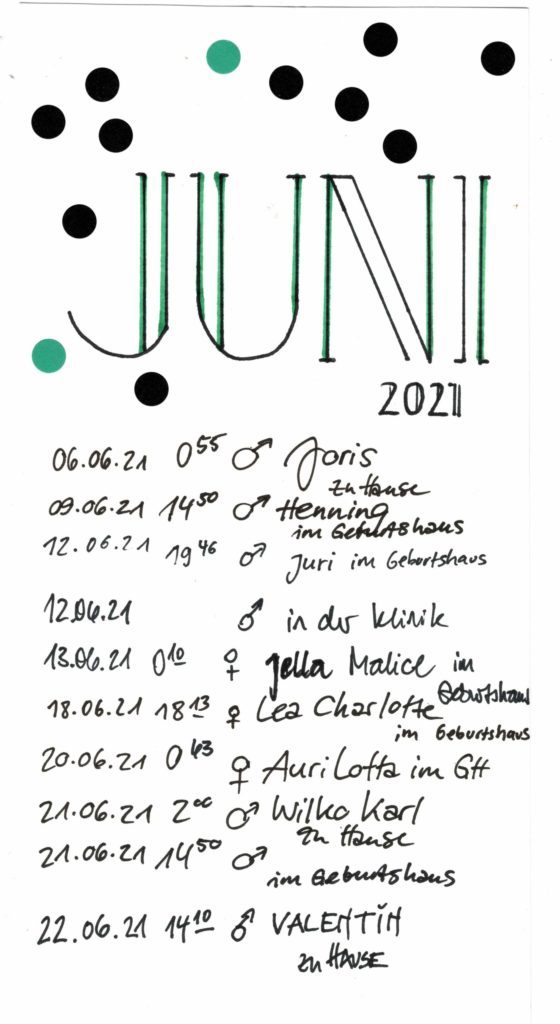 JUNI
2021
06.06.21 0⁵⁵ ♂ Joris
zu Hause
09.06.21 14⁵⁰ ♂ Henning
im Geburtshaus
12.06.21 19⁴⁶ ♂ Juri im Geburtshaus
12.06.21 ♂ in der Klinik
13.06.21 0¹⁰ ♀ Jella Malice im
Geburtshaus
18.06.21 18¹³ ♀ Lea Charlotte
im Geburtshaus
20.06.21 0⁴³ ♀ Auri Lotta im GH
21.06.21 2⁰⁰ ♂ Wilko Karl
zu Hause
21.06.21 14⁵⁰ ♂
im Geburtshaus
22.06.21 14¹⁰ ♂ VALENTIN
zu HAUSE